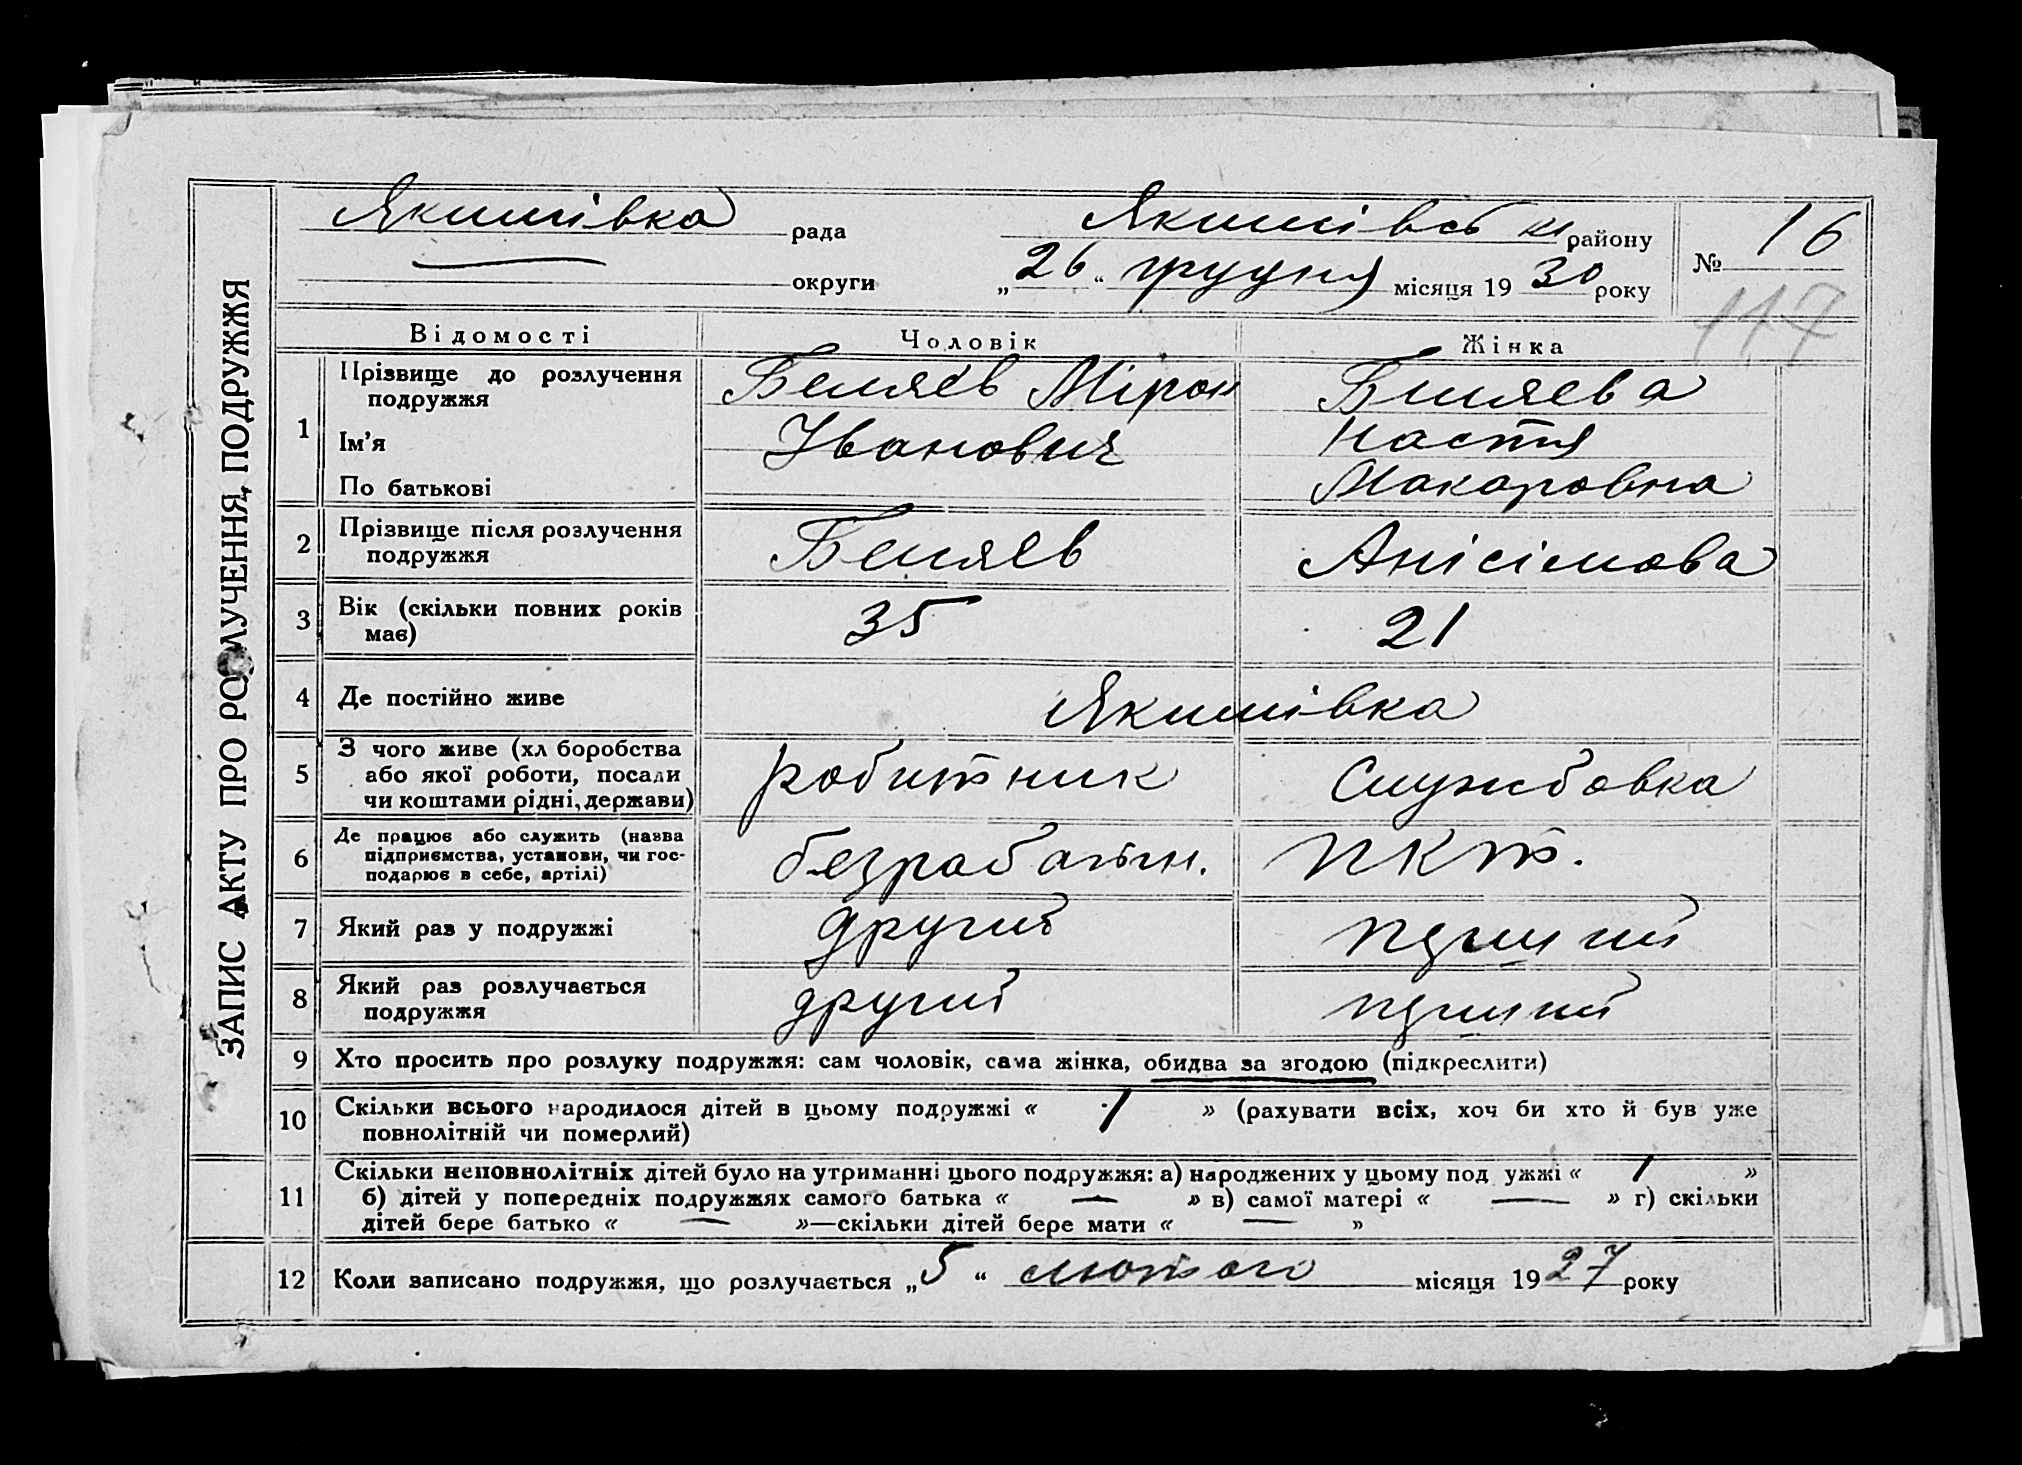 ЗАПИС АКТУ ПРО РОЗЛУЧЕННЯ ПОДРУЖЖЯ
Якимівка рада Якимівськ району № 16
округи „26“ грудня місяця 1930 року
117
Відомості Чоловік Жінка
1 Прізвище до розлучення подружжя Беляєв Мірон Биляева
Ім’я Іванович Настя
По батькові Макаровна
2 Прізвище після розлучення подружжя Беляєв Анісімова
3 Вік (скільки повних років має) 35 21
4 Де постійно живе Якимівка
5 З чого живе (хл боробства або якої роботи, посади чи коштами рідні, держави) робитник Службовка
6 Де працює або служить (назва підприємства, установи, чи господарює в себе, артілі) ПКТ.
7 Який раз у подружжі другий
8 Який раз розлучається подружжя другий
9 Хто просить про розлуку подружжя: сам чоловік, сама жінка, обидва за згодою (підкреслити)
10 Скільки всього народилося дітей в цьому подружжі « 1 » (рахувати всіх, хоч би хто й був уже
повнолітній чи померлий)
11 Скільки неповнолітніх дітей було на утриманні цього подружжя: а) народжених у цьому под ужжі « 1 »
б) дітей у попередніх подружжях самого батька « — » в) самої матері « — » г) скільки
дітей бере батько « — »—скільки дітей бере мати « — »
12 Коли записано подружжя, що розлучається „5“ лютого місяця 1927 року